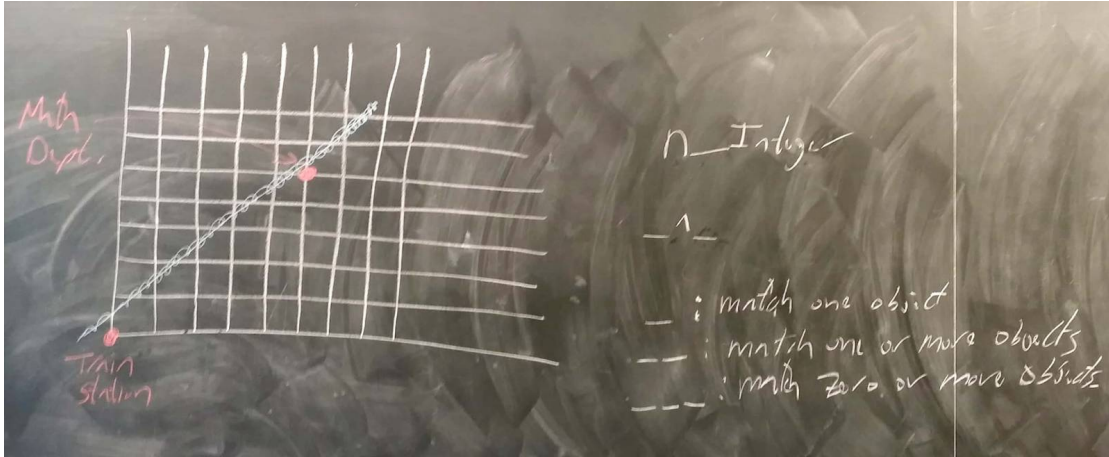 Math
Dept.
Train
station
n_Integer
_^_
_ : match one object
__ : match one or more objects
___ : match zero or more objects